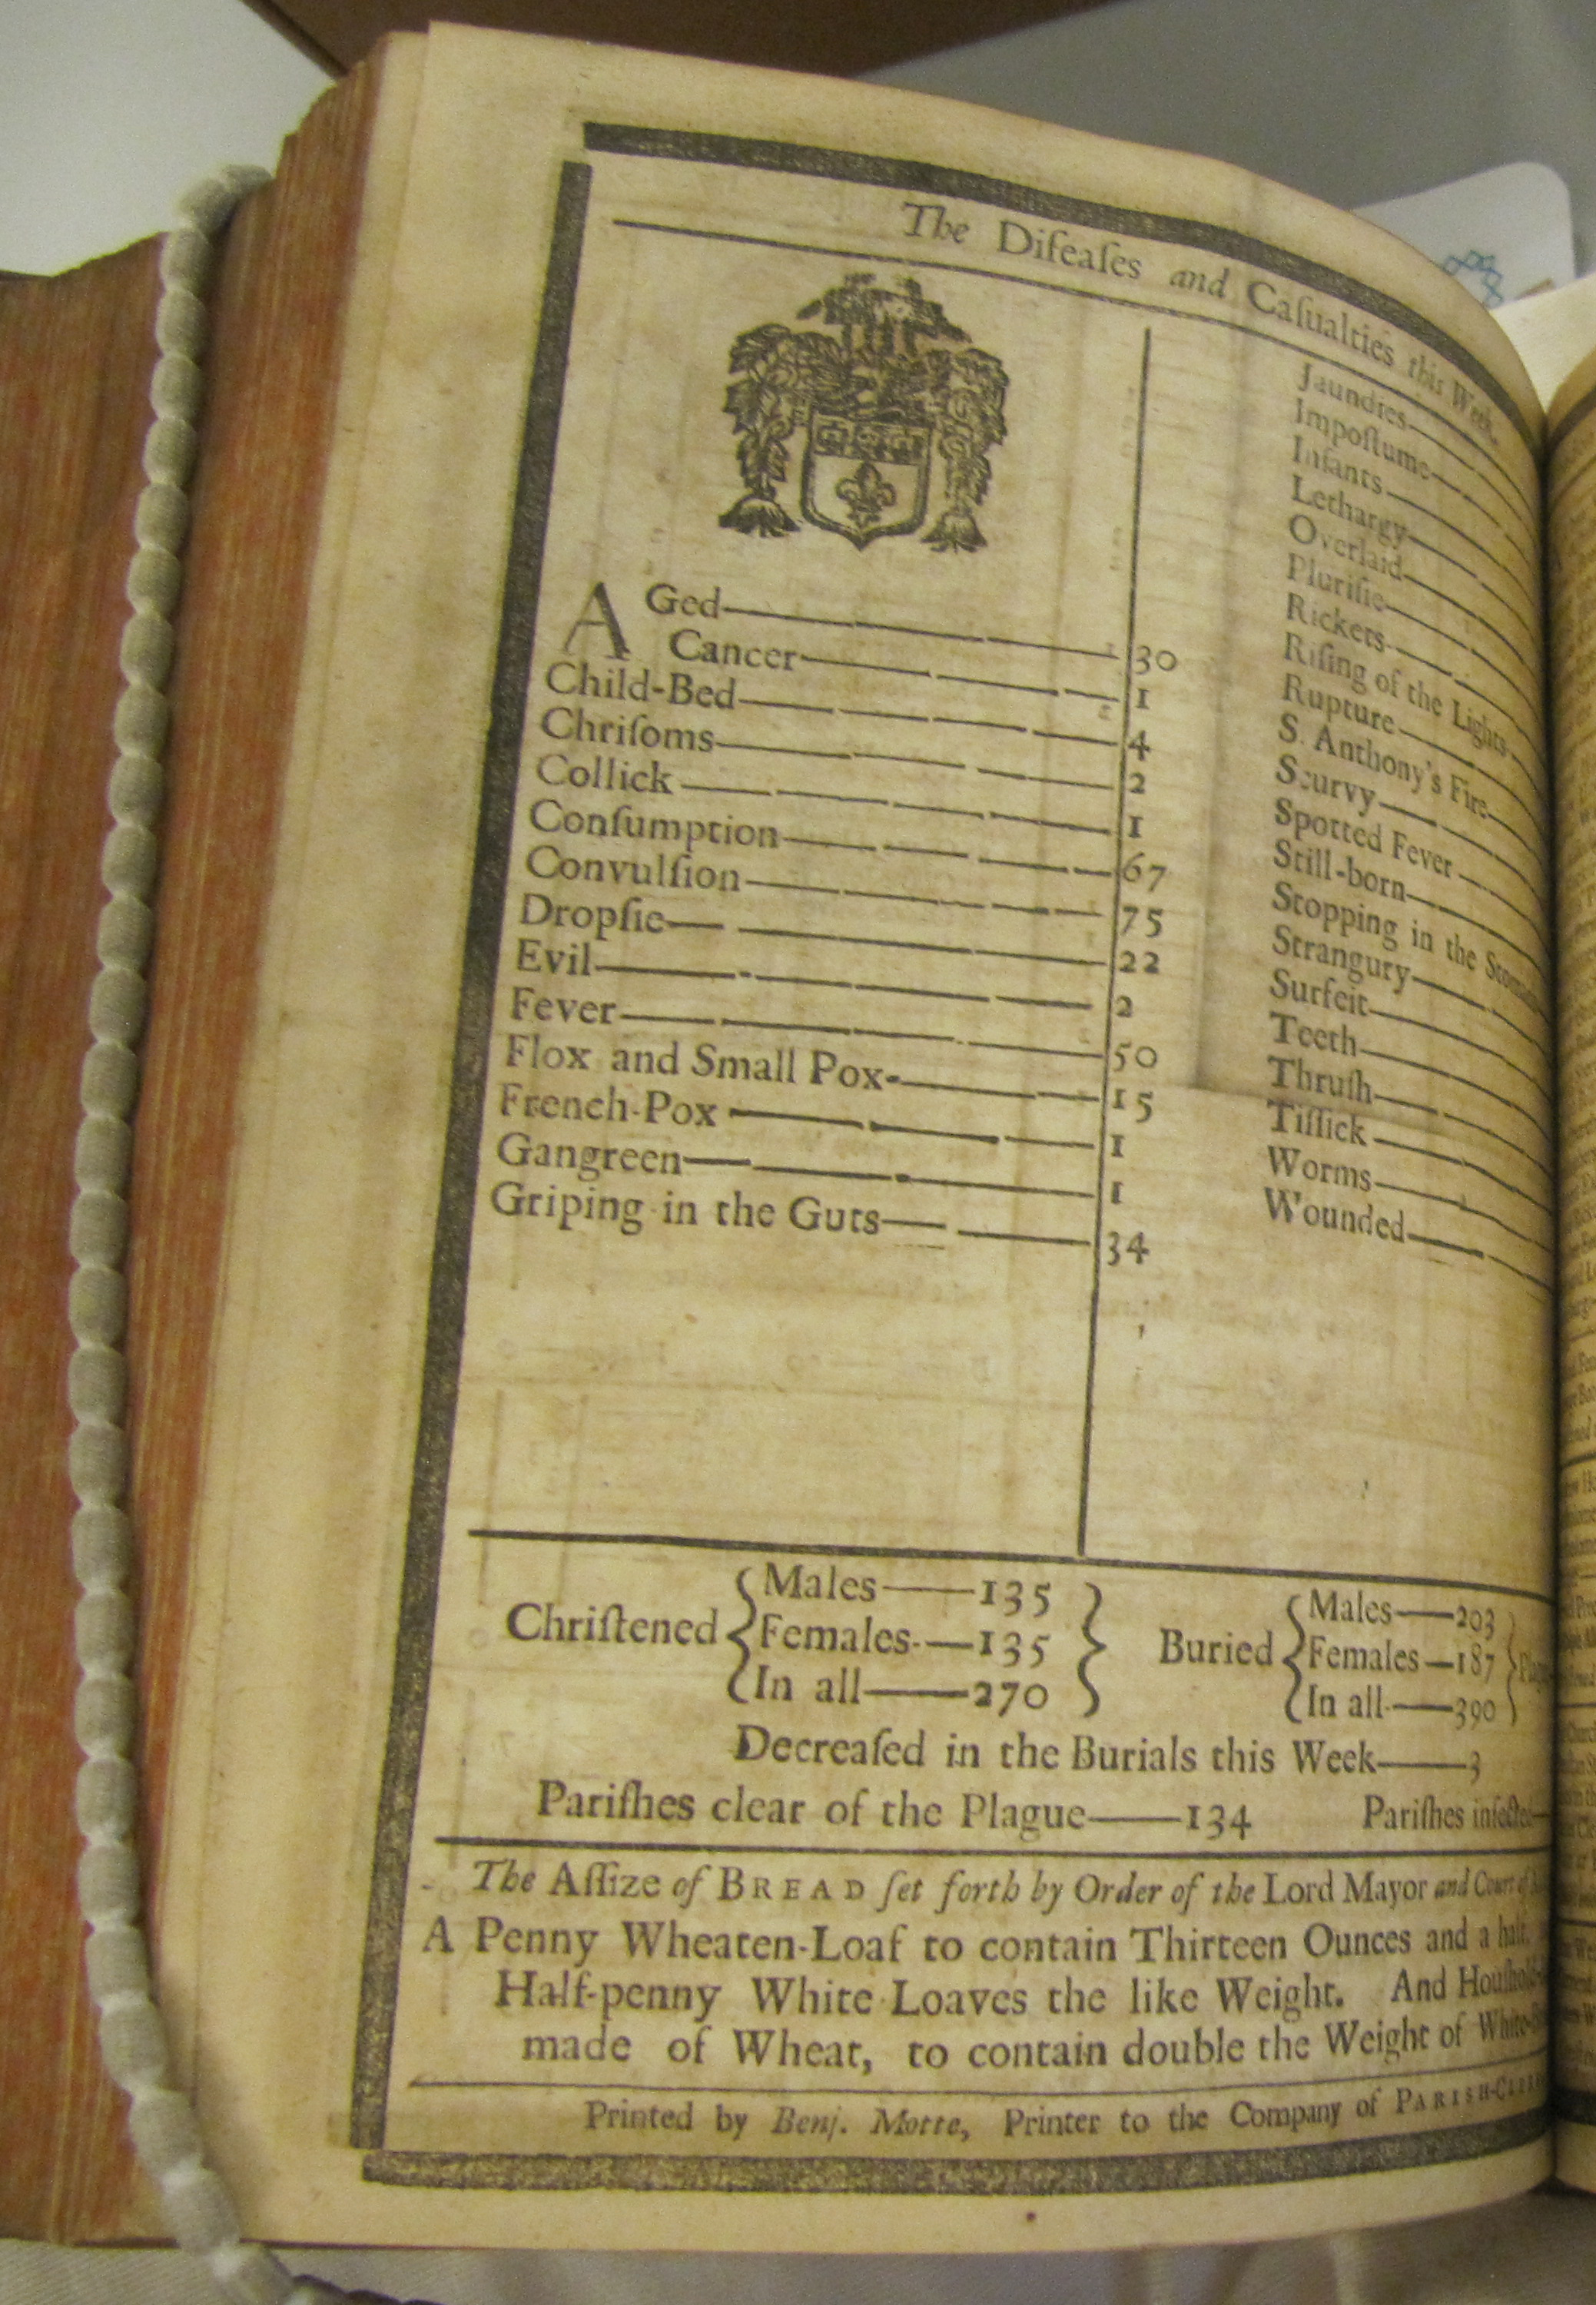 The Diſeaſes and Caſualties this Week.
AGed 30
Cancer 1
Child-Bed 4
Chriſoms 2
Collick 1
Conſumption 67
Convulſion 75
Dropſie 22
Evil 2
Fever 50
Flox and Small Pox 15
French-Pox 1
Gangreen 1
Griping in the Guts 34
Jaundies
Impoſtume
Infants
Lethargy
Overlaid
Pluriſie
Rickets
Riſing of the Lights
Rupture
S. Anthony's Fire
Scurvy
Spotted Fever
Still-born
Stopping in the
Strangury
Surfeit
Teeth
Thruſh
Tiſſick
Worms
Wounded
Chriſtened
Males—135
Females—135
In all—270
Buried
Males—203
Females—187
In all—390
Decreaſed in the Burials this Week—3
Pariſhes clear of the Plague—134 Pariſhes infected
The Aſſize of BREAD ſet forth by Order of the Lord Mayor and Court of
A Penny Wheaten-Loaf to contain Thirteen Ounces and a half,
Half-penny White Loaves the like Weight. And
made of Wheat, to contain double the Weight of
Printed by Benj. Motte, Printer to the Company of